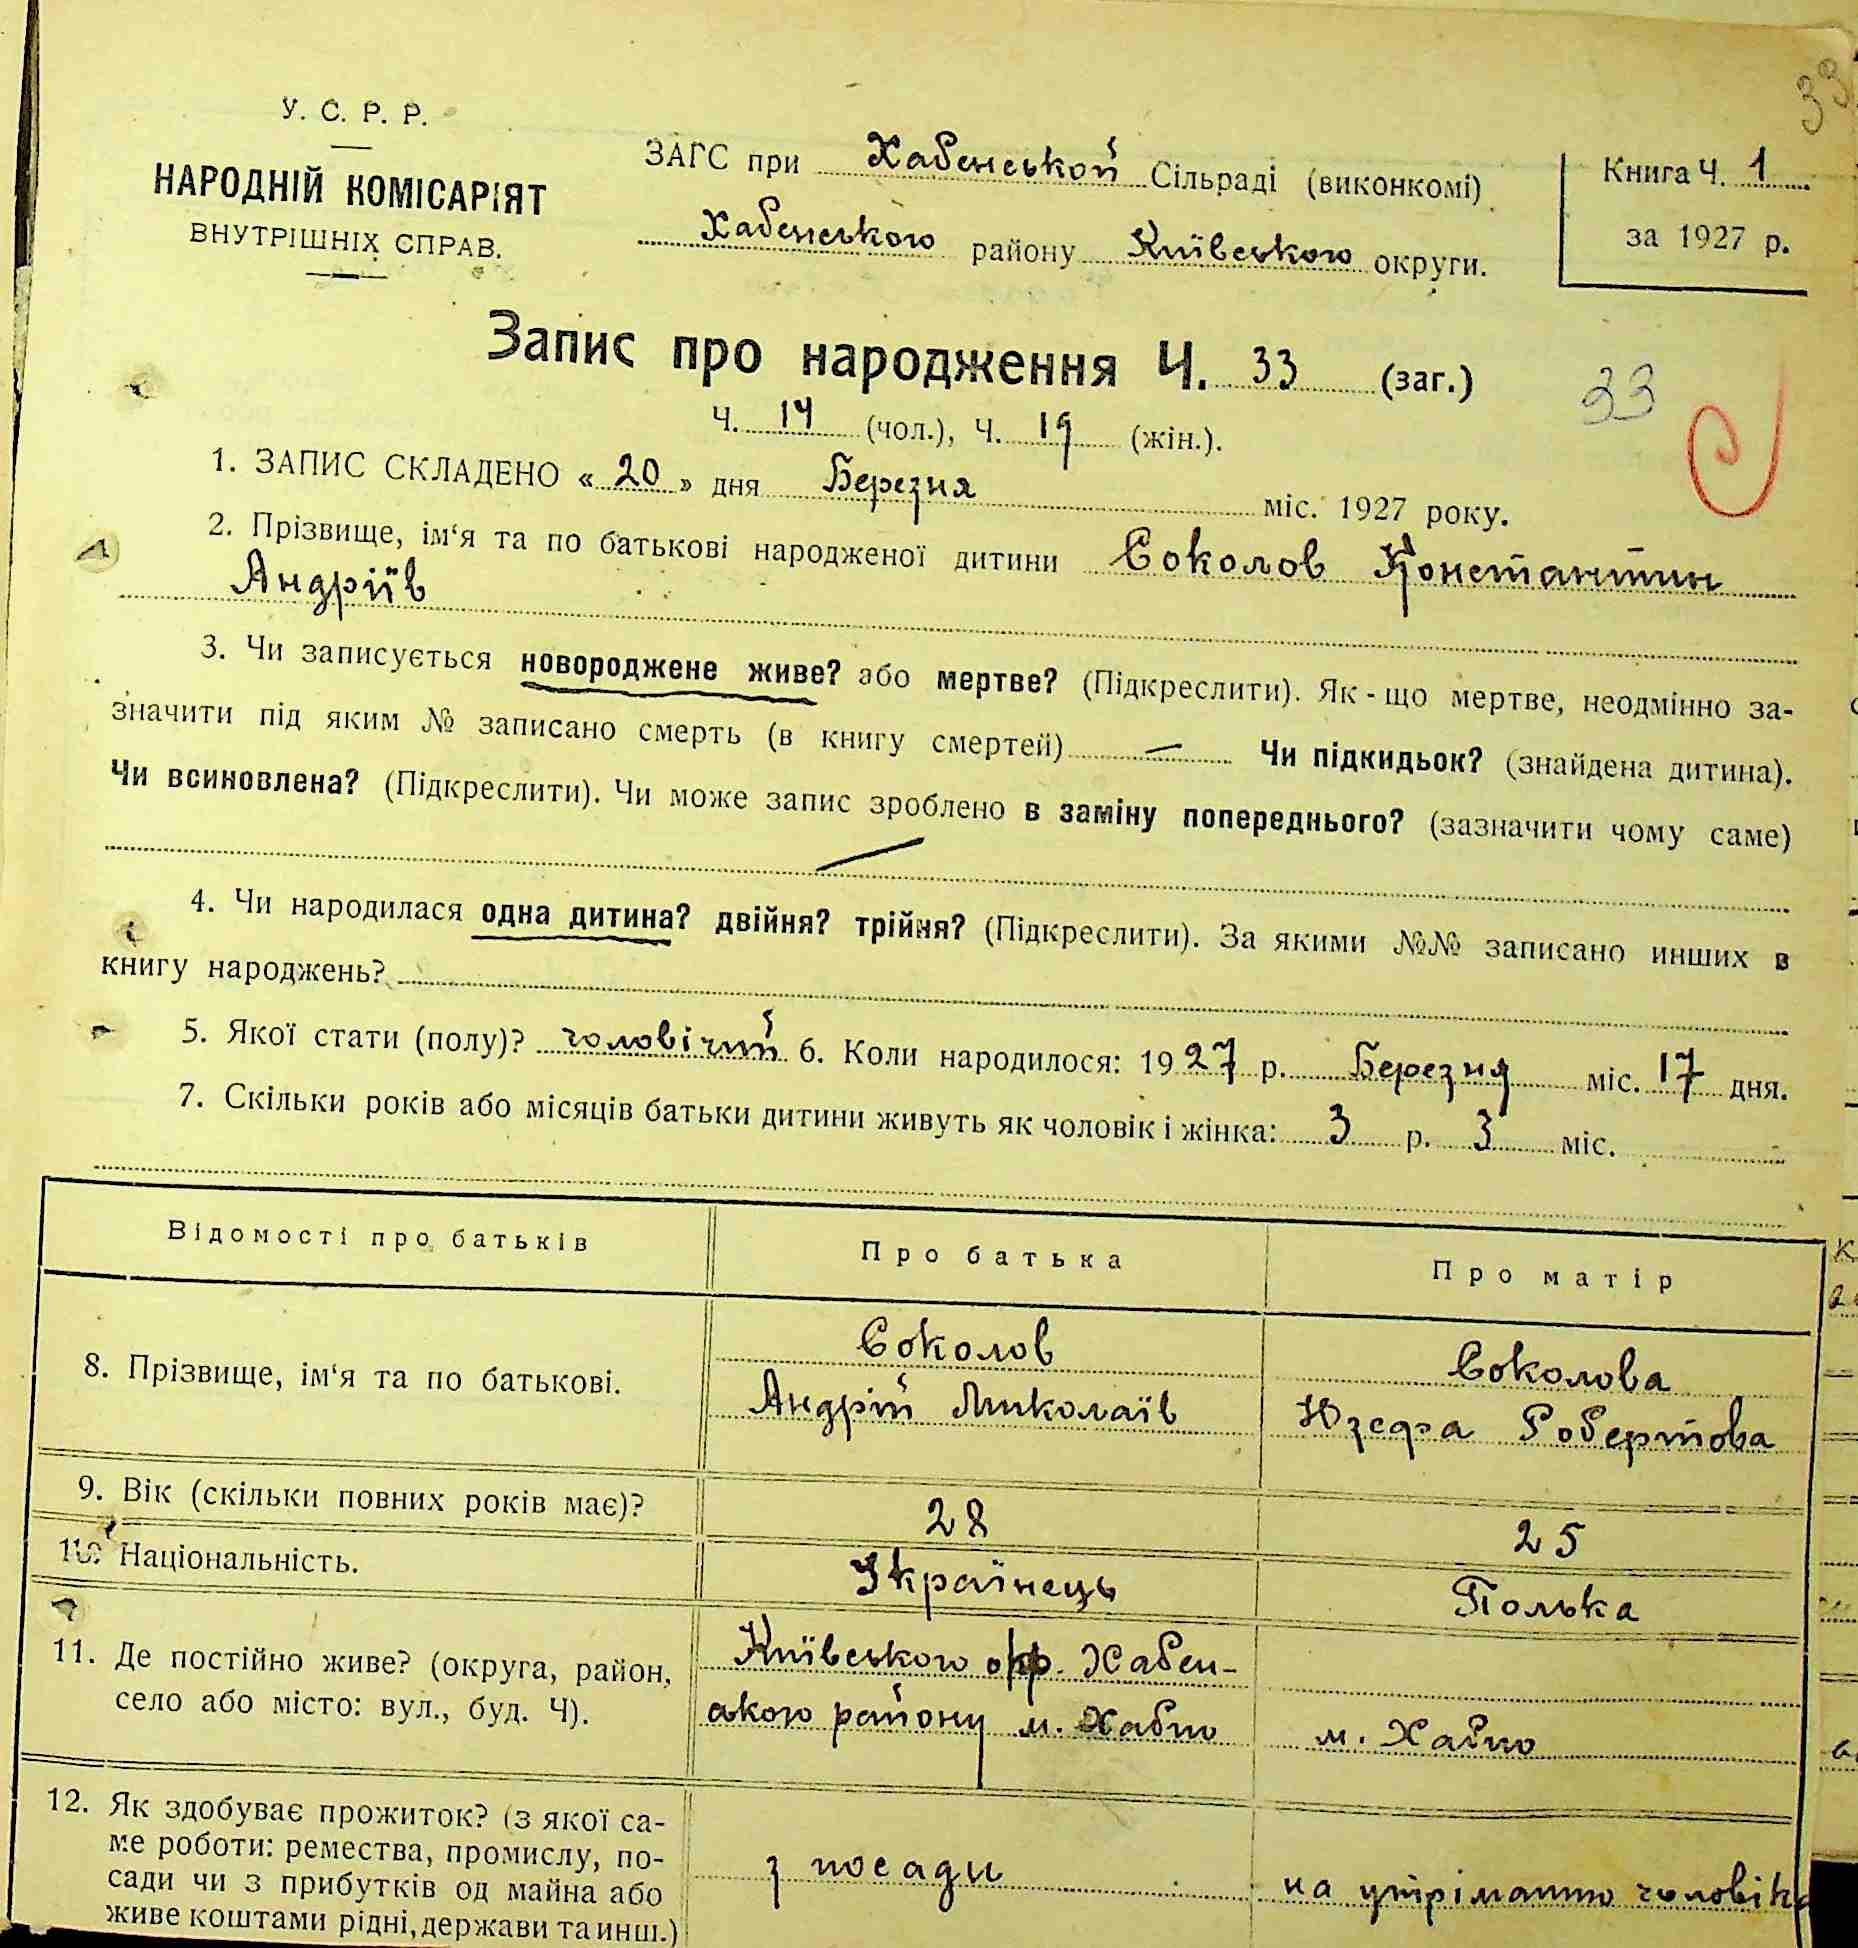 33
У. С. Р. Р.
НАРОДНІЙ КОМІСАРІЯТ
ВНУТРІШНІХ СПРАВ.
ЗАГС при Хабенській Сільраді (виконкомі)
Хабенського району Київського округи.
Книга Ч. 1
за 1927 р.
Запис про народження Ч. 33 (заг.)
33
Ч. 14 (чол.), Ч. 19 (жін.).
1. ЗАПИС СКЛАДЕНО « 20 » дня Березня міс. 1927 року.
2. Прізвище, ім‘я та по батькові народженої дитини Соколов Константин
Андріїв
3. Чи записується новороджене живе? або мертве? (Підкреслити). Як - що мертве, неодмінно за-
значити під яким № записано смерть (в книгу смертей) — Чи підкидьок? (знайдена дитина).
Чи всиновлена? (Підкреслити). Чи може запис зроблено в заміну попереднього? (зазначити чому саме)
4. Чи народилася одна дитина? двійня? трійня? (Підкреслити). За якими №№ записано инших в
книгу народжень?
5. Якої стати (полу)? чоловічий 6. Коли народилося: 1927 р. Березня міс. 17 дня.
7. Скільки років або місяців батьки дитини живуть як чоловік і жінка: 3 р. 3 міс.
Відомості про батьків Про батька Про матір
8. Прізвище, ім‘я та по батькові.
Соколов
Андрій Миколаїв
Соколова
Юзефа Робертова
9. Вік (скільки повних років має)? 28 25
10. Національність. Українець Полька
11. Де постійно живе? (округа, район,
село або місто: вул., буд. Ч).
Київського окр. Хабен-
ського району м. Хабно
м. Хабно
12. Як здобуває прожиток? (з якої са-
ме роботи: ремества, промислу, по-
сади чи з прибутків од майна або
живе коштами рідні, держави та инш.)
з посади
на утріманню чоловіка